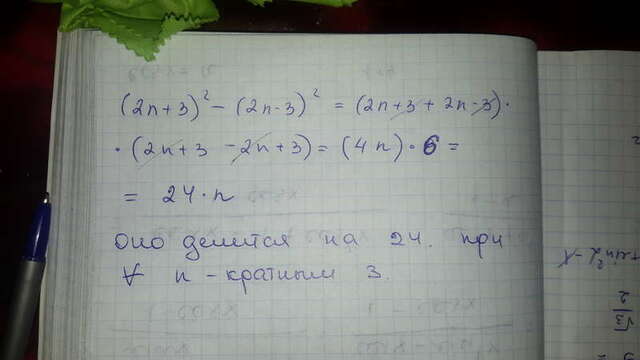 (2n+3)² - (2n-3)² = (2n+3 + 2n-3)·
· (2n+3 -2n+3) = (4n)·6 =
= 24·n
Оно делится на 24. при
∀ n - кратным 3.